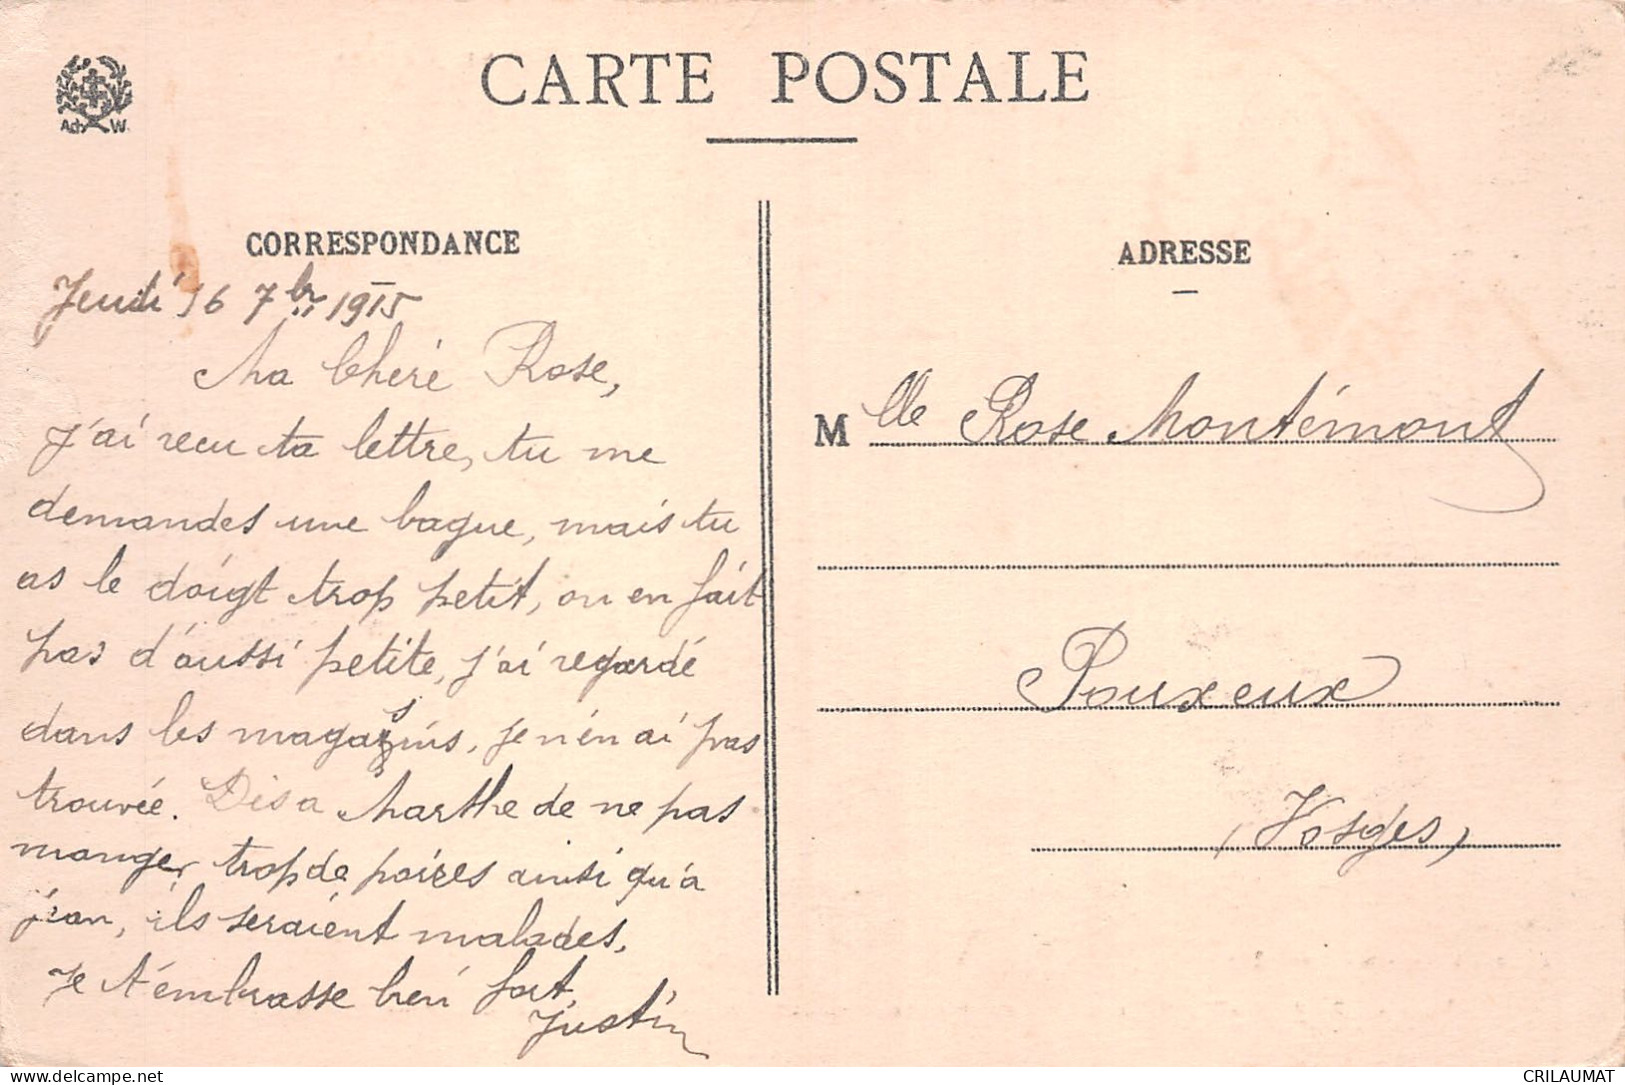 CARTE POSTALE
Ad. W.
CORRESPONDANCE
Jeudi 16 7bre 1915
Ma Chère Rose,
j'ai reçu ta lettre, tu me
demandes une bague, mais tu
as le doigt trop petit, on en fait
pas d'aussi petite, j'ai regardé
dans les magasins, je n'en ai pas
trouvée. Dis a Marthe de ne pas
manger trop de poires ainsi qu'a
jean, ils seraient malades.
Je t'embrasse bien fort.
Justin
ADRESSE
Mlle Rose Montémont
Pouxeux
(Vosges)
CRILAUMAT